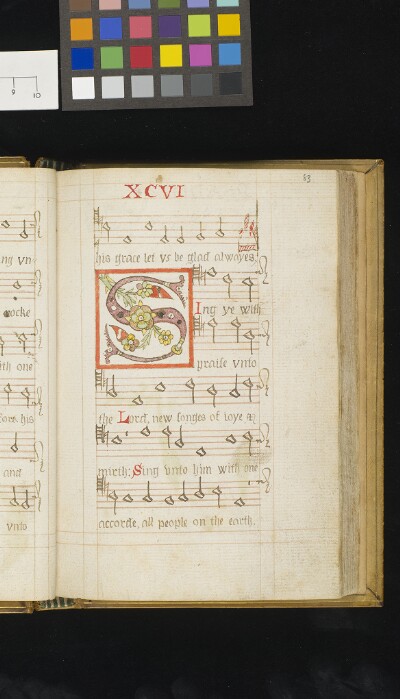 XCVI
63
his grace let vs be glad alwayes.
Sing ye with
praise vnto
the Lord, new songes of ioye &
mirth: Sing vnto him with one
accorde, all people on the earth.
ng vn
rocke
ith one
fore his
and
vnto